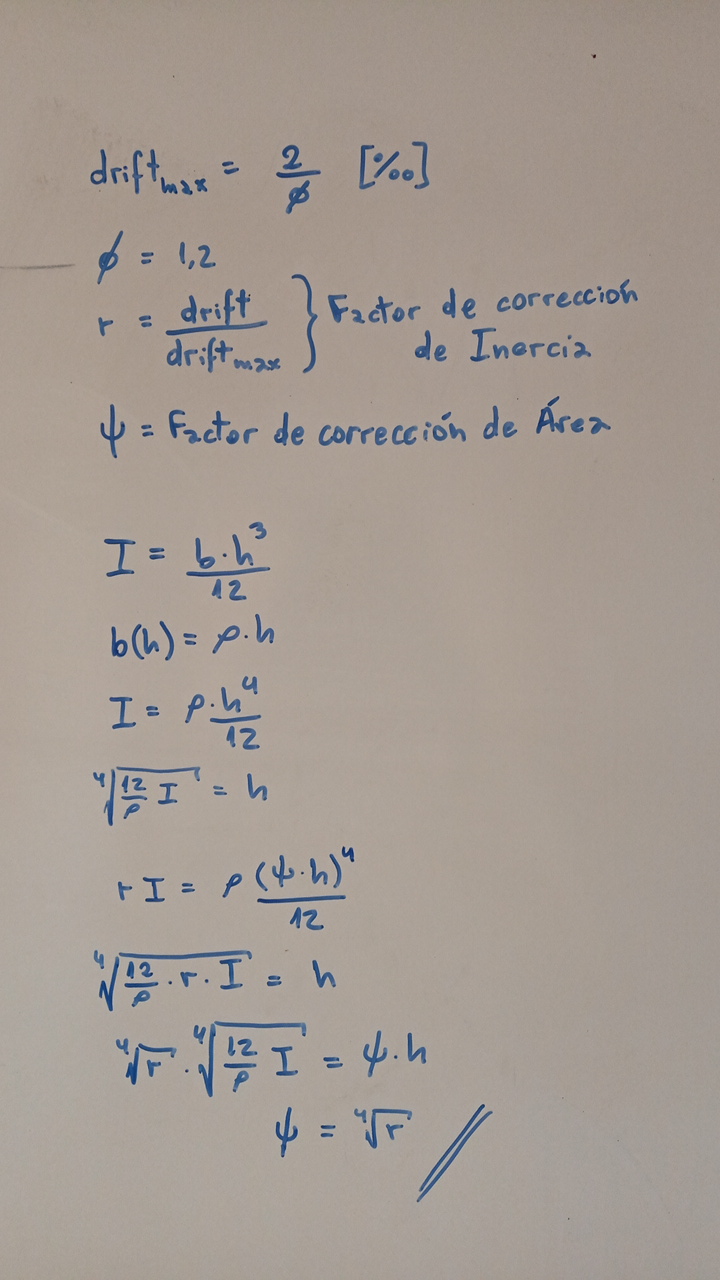 drift_max = 2/φ [‰]
φ = 1,2
r = drift/drift_max } Factor de corrección de Inercia
ψ = Factor de corrección de Área
I = b·h³/12
b(h) = ρ·h
I = ρ·h⁴/12
⁴√(12/ρ I) = h
r I = ρ (ψ·h)⁴/12
⁴√(12/ρ · r · I) = h
⁴√r · ⁴√(12/ρ I) = ψ·h
ψ = ⁴√r